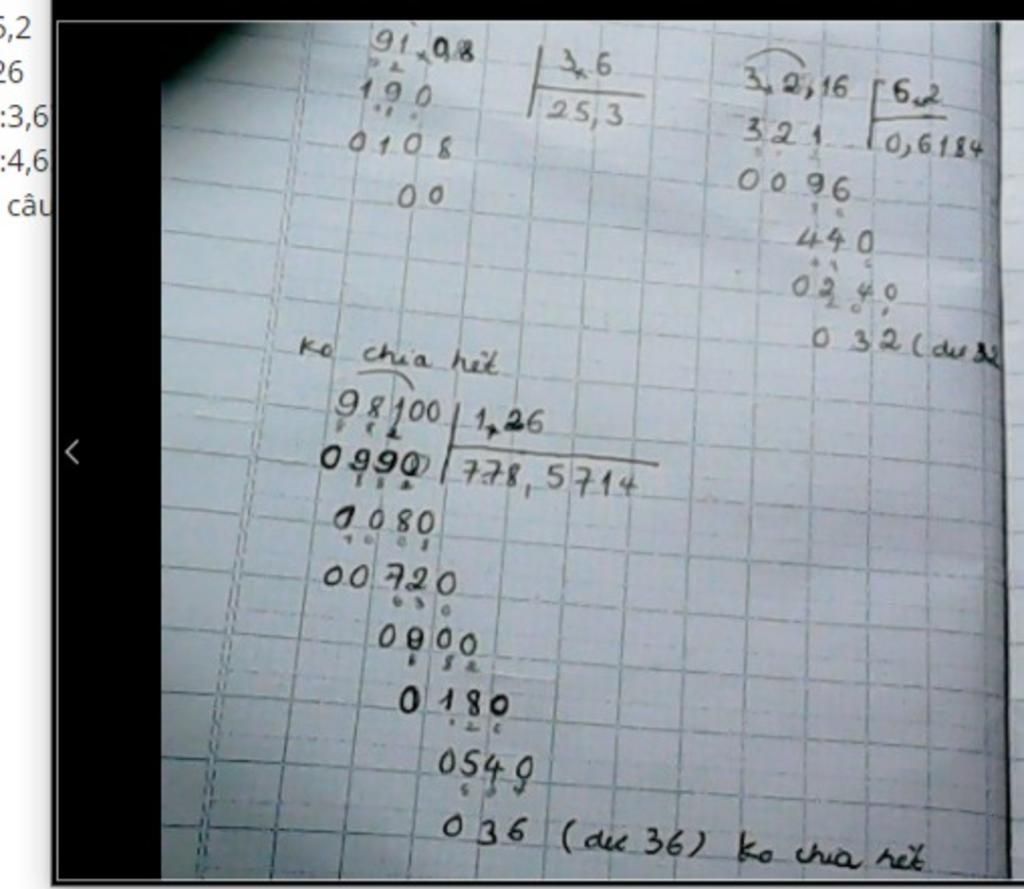 5,2
26
:3,6
:4,6
câu
91,08 3,6
190 25,3
0108
00
3,2,16 5,2
321 0,6184
0096
440
0240
032 (dư 32
Ko chia hết
98100 1,26
0990 778,5714
1080
00720
0900
0180
0540
036 (dư 36) Ko chia hết